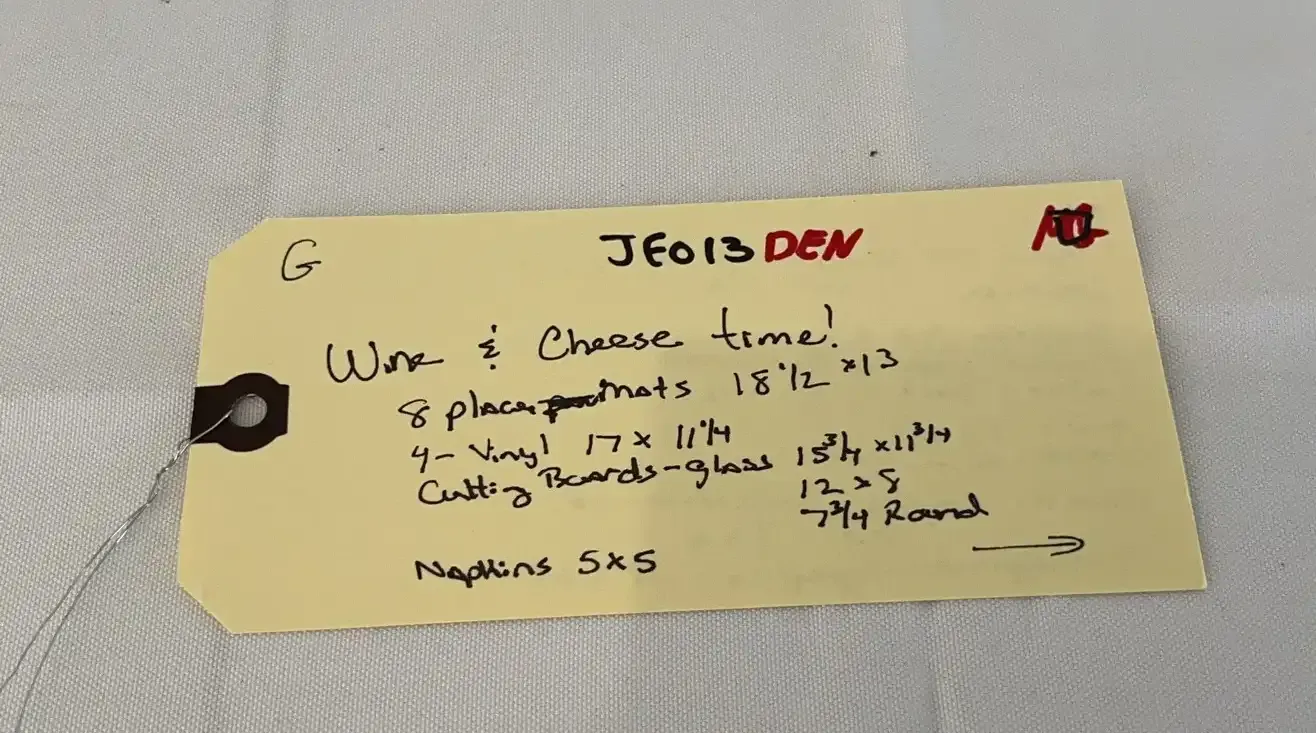 G
JF013 DEN
Wine & Cheese time!
8 place mats 18 1/2 x 13
4- Vinyl 17 x 11 1/4
Cutting Boards-glass 15 3/4 x 11 3/4
12 x 8
7 3/4 Round
Napkins 5x5